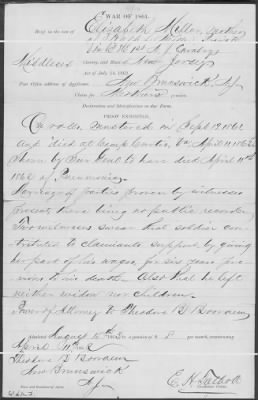 WAR OF 1861.
Brief in the case of Elizabeth Miller, Mother
of
Co B 1st N J Cavalry
Middlesex County, and State of New Jersey
Act of July 14, 1862.
Post Office address of Applicant: New Brunswick, N.J.
Claim for Mother's pension.
Declaration and Identification in due Form.
PROOF EXHIBITED.
On rolls. Mustered in Sept 12 1861
and died at Camp Custis, Va. April 11, 1862
Shown by Sur Genl to have died April 11th
1862 of Pneumonia.
Marriage of parties proven by witnesses
present, there being no public records
Two witnesses swear that soldier con-
tributed to claimants support by giving
her part of his wages, for six years pre-
vious to his death. Also that he left
neither widow nor children.
Power of Attorney to Theodore B Booraem
Admitted August 15th 1862 to a pension of $ 8 per month, commencing
April 11th 1862
Theodore B Booraem
New Brunswick
N.J.
E. H. Talbott